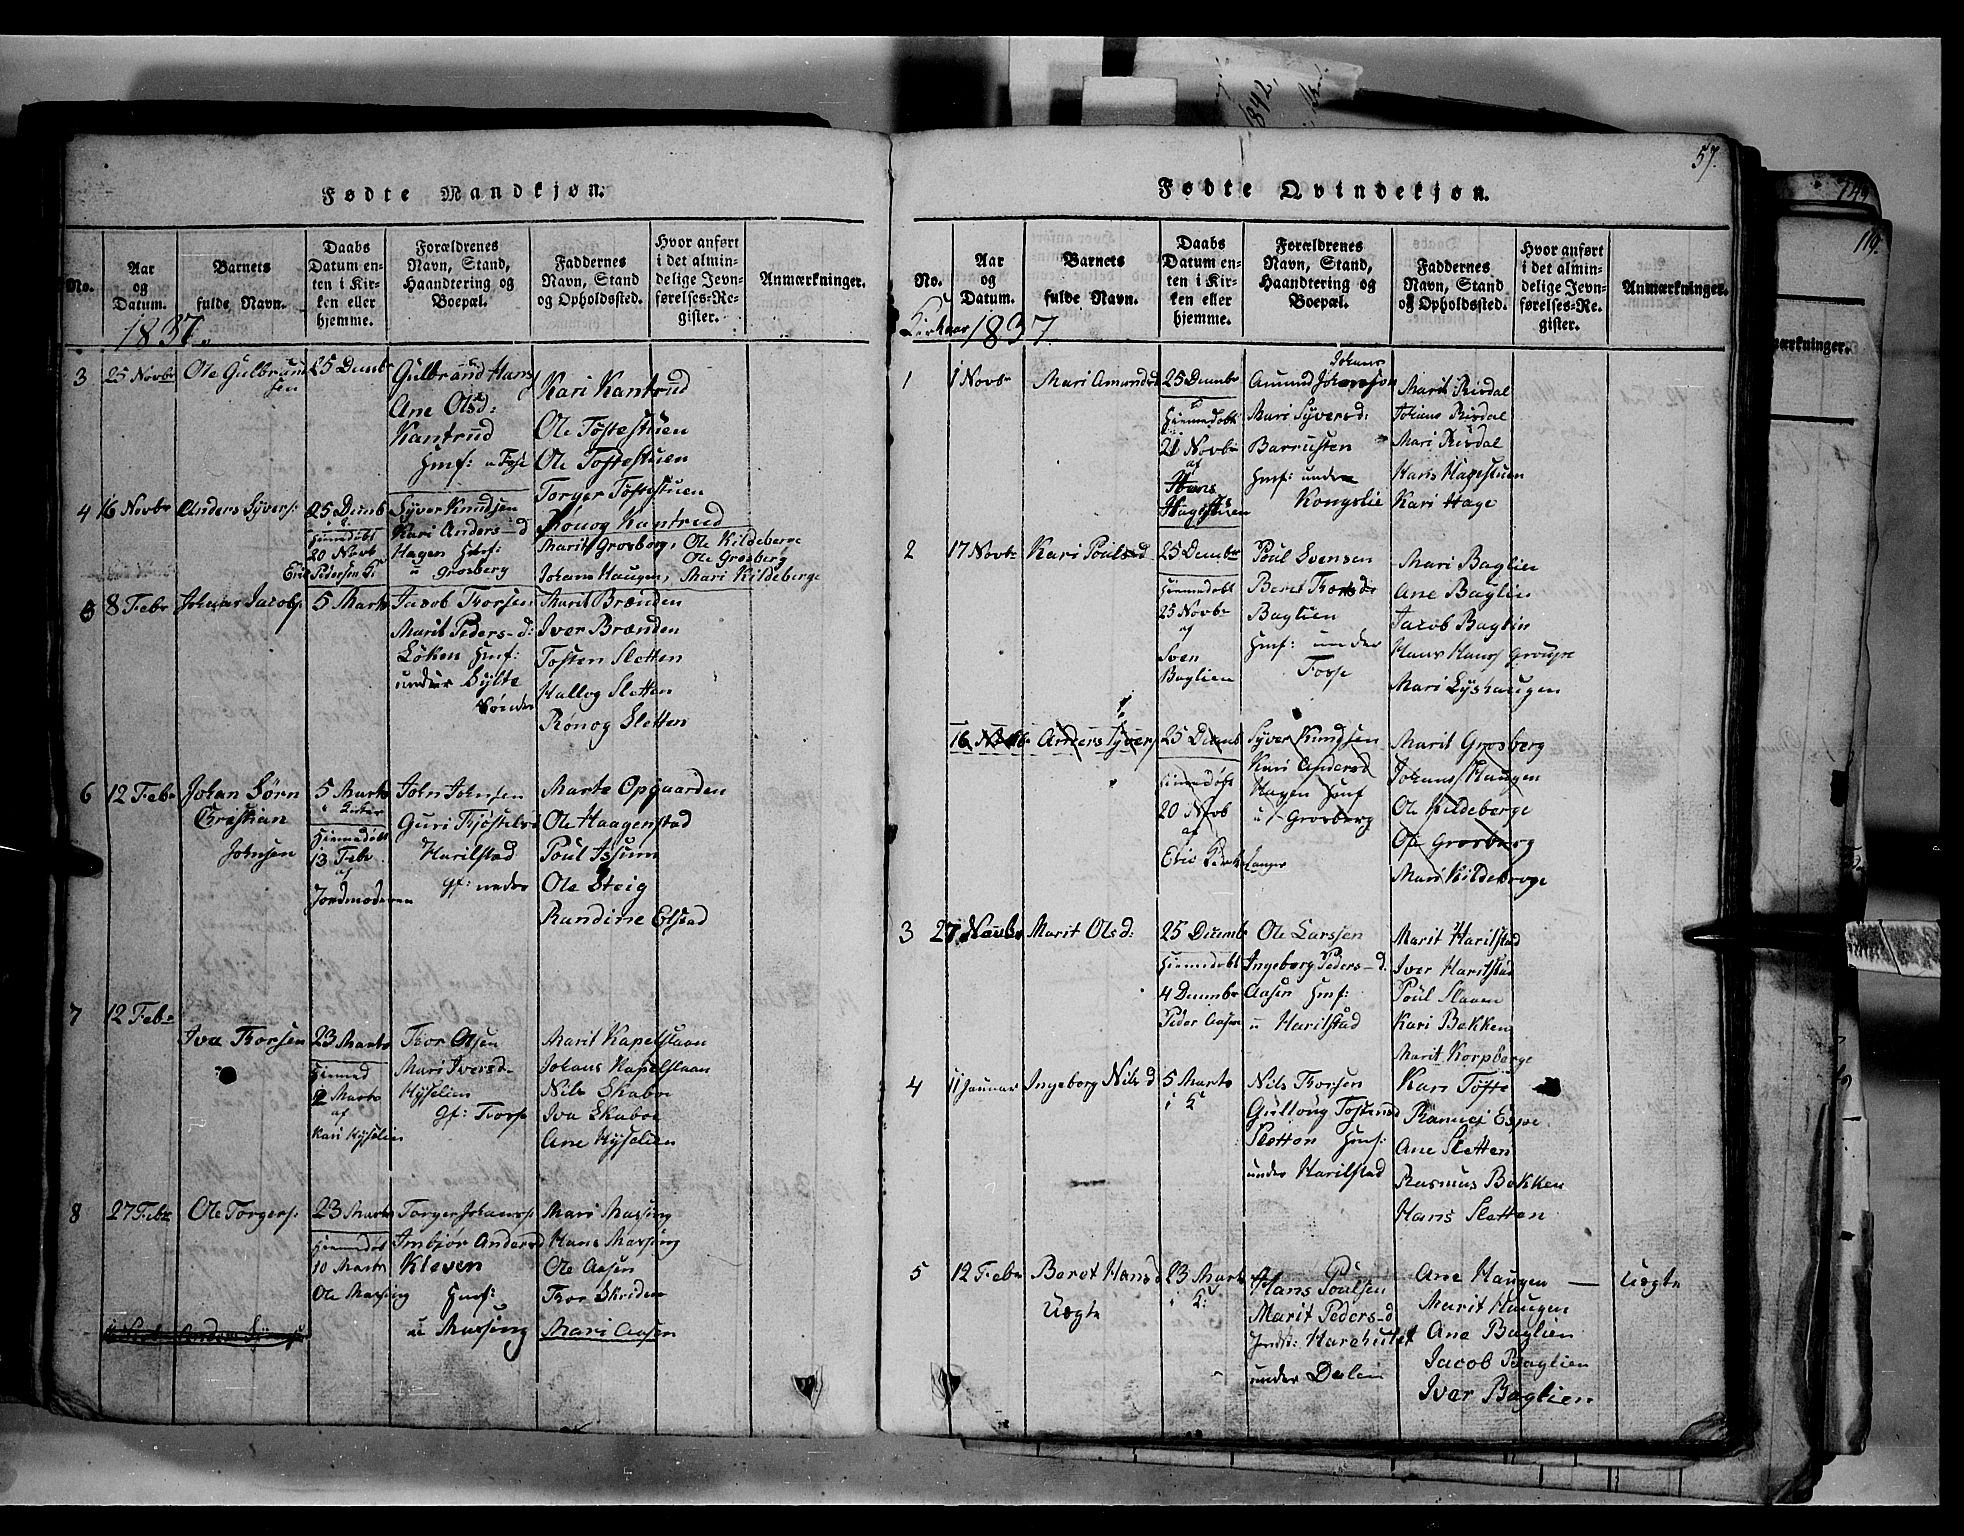 Fødte Mandkjøn.
No.
Aar og Datum.
Barnets fulde Navn.
Daabs Datum enten i Kirken eller hjemme.
Forældrenes Navn, Stand, Haandtering og Boepæl.
Faddernes Navn, Stand og Opholdssted.
Hvor anført i det almindelige Jevnførelses-Register.
Anmærkninger.
1837.
3 25 Novbr Ole Gulbrandsen
25 Decmbr
Gulbrand Hans
Ane Olsd:
Kantrud
Hmf: u Fose
Kari Kantrud
Ole Toftestuen
Ole Toftestuen
Torger Toftestuen
Rönog Kantrud
4 16 Novbr Anders Syvers:
25 Decmb
Hiemedöbt
20 Novb
Erik Pedersen K:
Syver Knudsen
Kari Anders-d
Hagen Hmf:
u Grosberg
Marit Grosberg, Ole Kildeberge
Ole Grosberg
Johans Haugen, Mari Kildeberge
5 8 Febr Johans Jacobs:
5 Marts
Jacob Thorsen
Marit Peders-d:
Löken Hmf:
under Sylte
Söndre
Marit Brænden
Iver Brænden
Tosten Sletten
Hallog Sletten
Rönog Sletten
6 12 Febr Johan Sörn
Christian
Johnsen
5 Marts
i Kirken
Hiemedöbt
13 Febr
af
Jordmoderen
John Johnsen
Guri Tjöstelsd
Harilstad
gf: nedre
Marte Opgaarden
Ole Haagenstad
Poul Issum
Ole Steig
Randine Elstad
7 12 Febr
Iva Thorsen
23 Marts
Hiemed
2 Marts
af
Kari Hyselien
Thor Olsen
Mari Iversd
Hyselien
gf: Thorse
Marit Kapelslaan
Johans Kapelslaan
Nils Skabo
Iva Skaboe
Ane Hyselien
8 27 Febr Ole Torgers:
23 Marts
Hiemedöbt
10 Marts
Ole Massing
Torger Johanss:
Imbjor Andersd
Kleven
Hmf:
u Massing
Mari Massing
Hans Massing
Ole Aasen
Thor Skriden
Mari Aasen
57.
Fødte Qvindekjøn.
No.
Aar og Datum.
Barnets fulde Navn.
Daabs Datum enten i Kirken eller hjemme.
Forældrenes Navn, Stand, Haandtering og Boepæl.
Faddernes Navn, Stand og Opholdssted.
Hvor anført i det almindelige Jevnførelses-Register.
Anmærkninger.
Kirkeaar 1837.
1 1 Novbr Mari Amundsd
25 Decmbr
Hiemedöbt
21 Novbr
af
Hans
Hagestuen
Johans
Amund Johansson
Mari Syversd:
Barrusten
Hmf: under
Kongslie
Marit Risdal
Johans Risdal
Mari Risdal
Hans Hagestuen
Kari Hage
2 17 Novbr Kari Poulsd
25 Decmbr
Hiemedöbt
25 Novbr
af
Sven
Baglien
Poul Svensen
Beret Thorsd:
Baglien
Hmf: under
Fosse
Mari Baglien
Ane Baglien
Jacob Baglien
Hans Hans Grouse
Mari Lyshaugen
16 Novb Anders Syvers
25 Decmb
Hiemedöbt
20 Novb
af
Eric Kirkesanger
Syver Knudsen
Kari Andersd
Hagen Hmf
u Grosberg
Marit Grosberg
Johans Haugen
Ole Kildeberge
Ole Grosberg
Mari Kildeberge
3 27 Novbr Marit Olsd:
25 Decmbr
Hiemedöbt
4 Decmbr
Peder Aasen
Ole Larssen
Ingeborg Peders-d.
Aasen Hmf:
u Harilstad
Marit Harilstad
Iver Harilstad
Poul Slaaen
Kari Bakken
Marit Korpberge
4 11 Januar Ingeborg Nilsd
5 Marts
i K
Nils Thorsen
Gulloug Tostensd
Sletten Hmf:
under Harilstad
Kari Tofte
Ramuel Espe
Ane Sletten
Rasmus Bakken
Hans Sletten
5 12 Febr Beret Hansd
Uegte
23 Marts
i K:
Hans Poulsen
Marit Peders-d
Harehulet
under Dalen
Ane Haugen — Uegte
Marit Haugen
Ane Baglien
Jacob Baglien
Iver Baglien
1842.
119.
mærkninger.